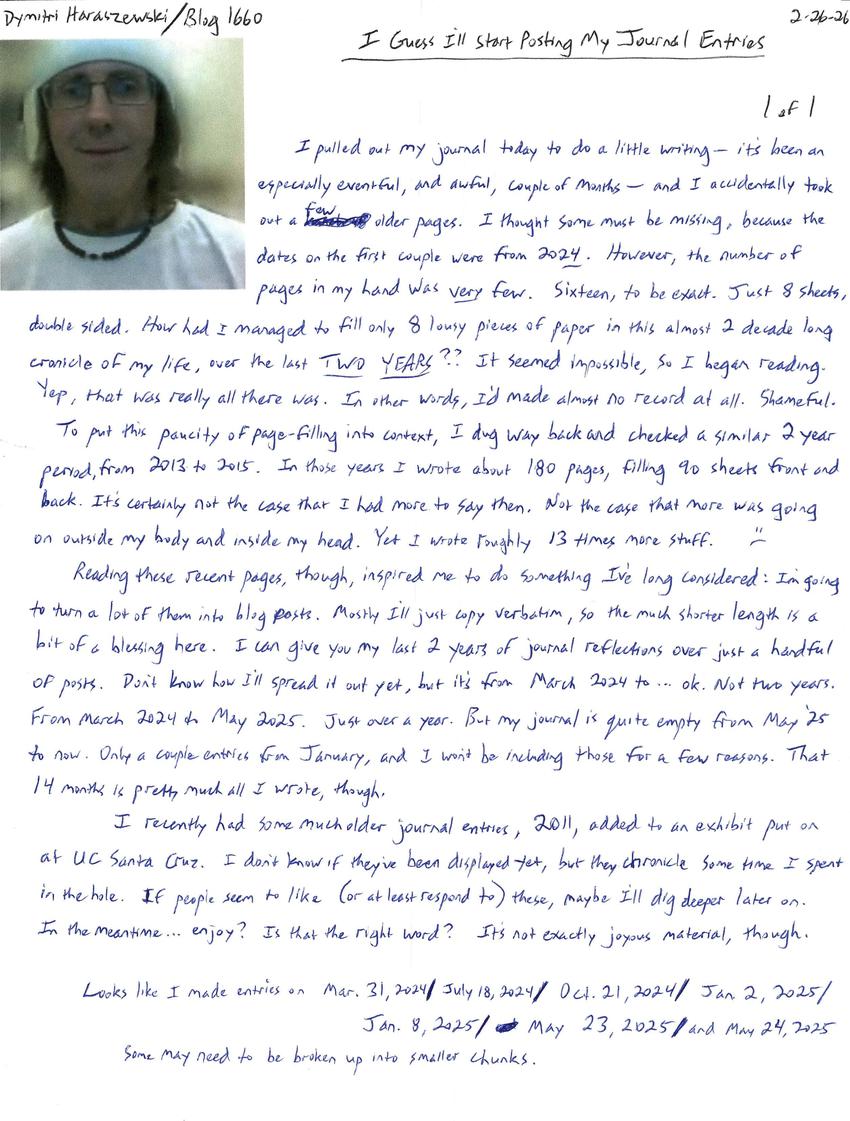 Dymitri Haraszewski/Blog 1660
2-26-26
I Guess Ill Start Posting My Journal Entries
1 of 1
I pulled out my journal today to do a little writing — it's been an
especially eventful, and awful, couple of months — and I accidentally took
out a few older pages. I thought some must be missing, because the
dates on the first couple were from 2024. However, the number of
pages in my hand was very few. Sixteen, to be exact. Just 8 sheets,
double sided. How had I managed to fill only 8 lousy pieces of paper in this almost 2 decade long
cronicle of my life, over the last TWO YEARS?? It seemed impossible, so I began reading.
Yep, that was really all there was. In other words, I'd made almost no record at all. Shameful.
To put this paucity of page-filling into context, I dug way back and checked a similar 2 year
period, from 2013 to 2015. In those years I wrote about 180 pages, filling 90 sheets front and
back. It's certainly not the case that I had more to say then. Not the case that more was going
on outside my body and inside my head. Yet I wrote roughly 13 times more stuff.
Reading these recent pages, though, inspired me to do something I've long considered: I'm going
to turn a lot of them into blog posts. Mostly I'll just copy verbatim, so the much shorter length is a
bit of a blessing here. I can give you my last 2 years of journal reflections over just a handful
of posts. Don't know how I'll spread it out yet, but it's from March 2024 to ... ok. Not two years.
From March 2024 to May 2025. Just over a year. But my journal is quite empty from May '25
to now. Only a couple entries from January, and I won't be including those for a few reasons. That
14 months is pretty much all I wrote, though.
I recently had some much older journal entries, 2011, added to an exhibit put on
at UC Santa Cruz. I don't know if they've been displayed yet, but they chronicle some time I spent
in the hole. If people seem to like (or at least respond to) these, maybe I'll dig deeper later on.
In the meantime... enjoy? Is that the right word? It's not exactly joyous material, though.
Looks like I made entries on Mar. 31, 2024/ July 18, 2024/ Oct. 21, 2024/ Jan. 2, 2025/
Jan. 8, 2025/ May 23, 2025/ and May 24, 2025
Some may need to be broken up into smaller chunks.